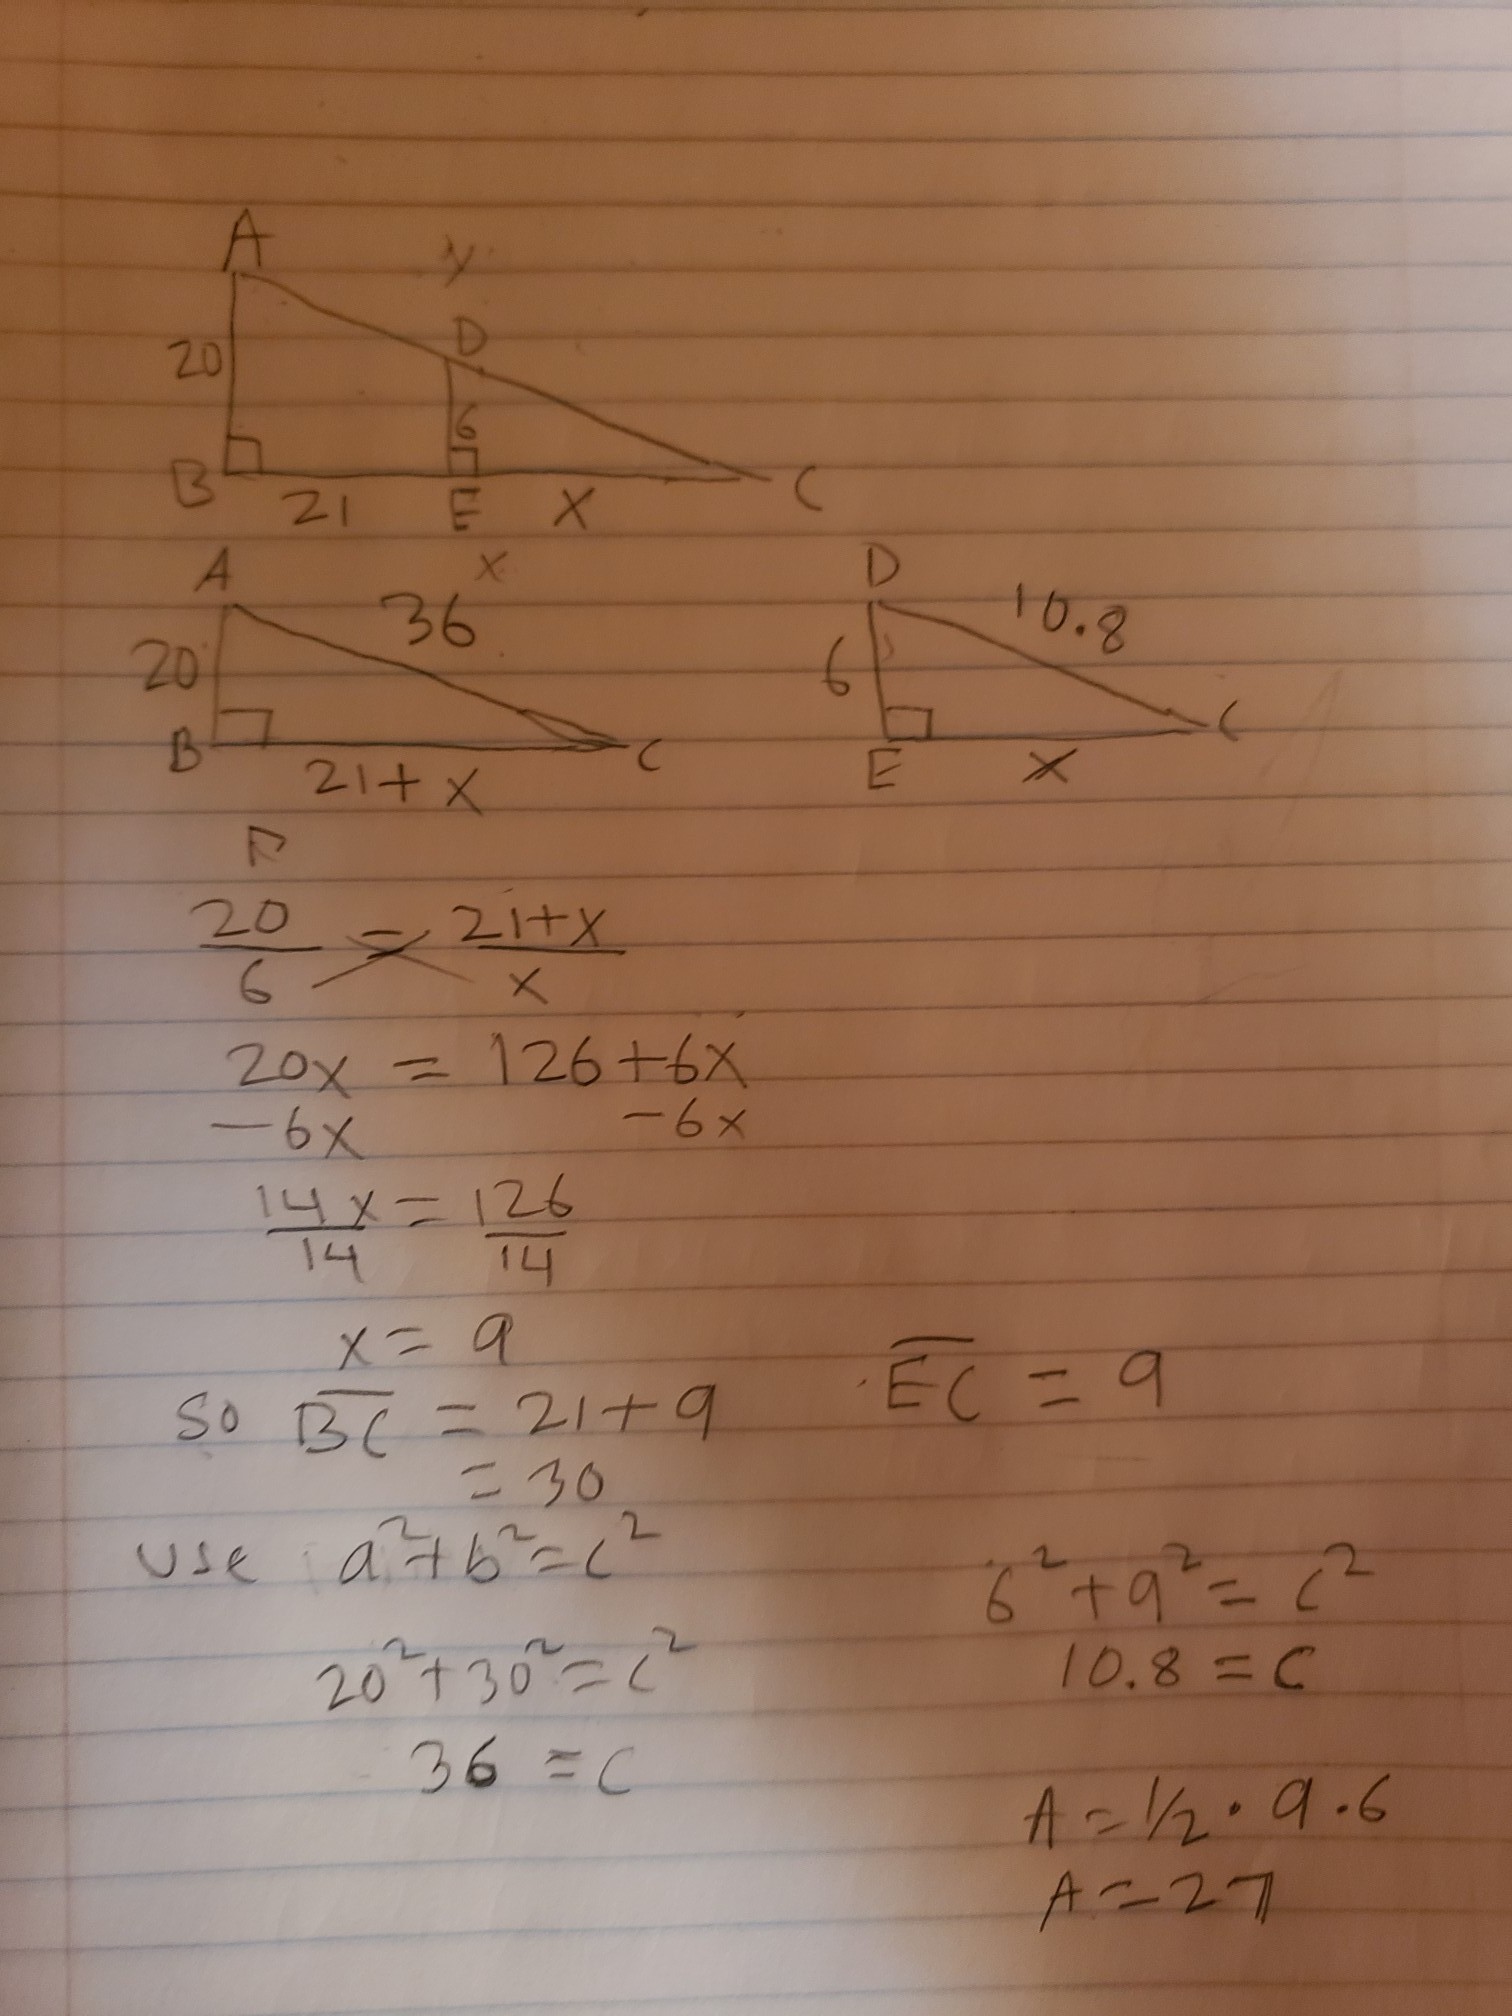 A y
20 D
6
B 21 E x C
x
A 36
20
B C
21 + x
D 10.8
6
E x C
20/6 = 21+x/x
20x = 126 + 6x
-6x -6x
14x/14 = 126/14
x = 9
so BC = 21 + 9 EC = 9
= 30
use a²+b²=c²
20²+30²=c²
36 = c
6²+9²=c²
10.8 = c
A = 1/2 · 9 · 6
A = 27